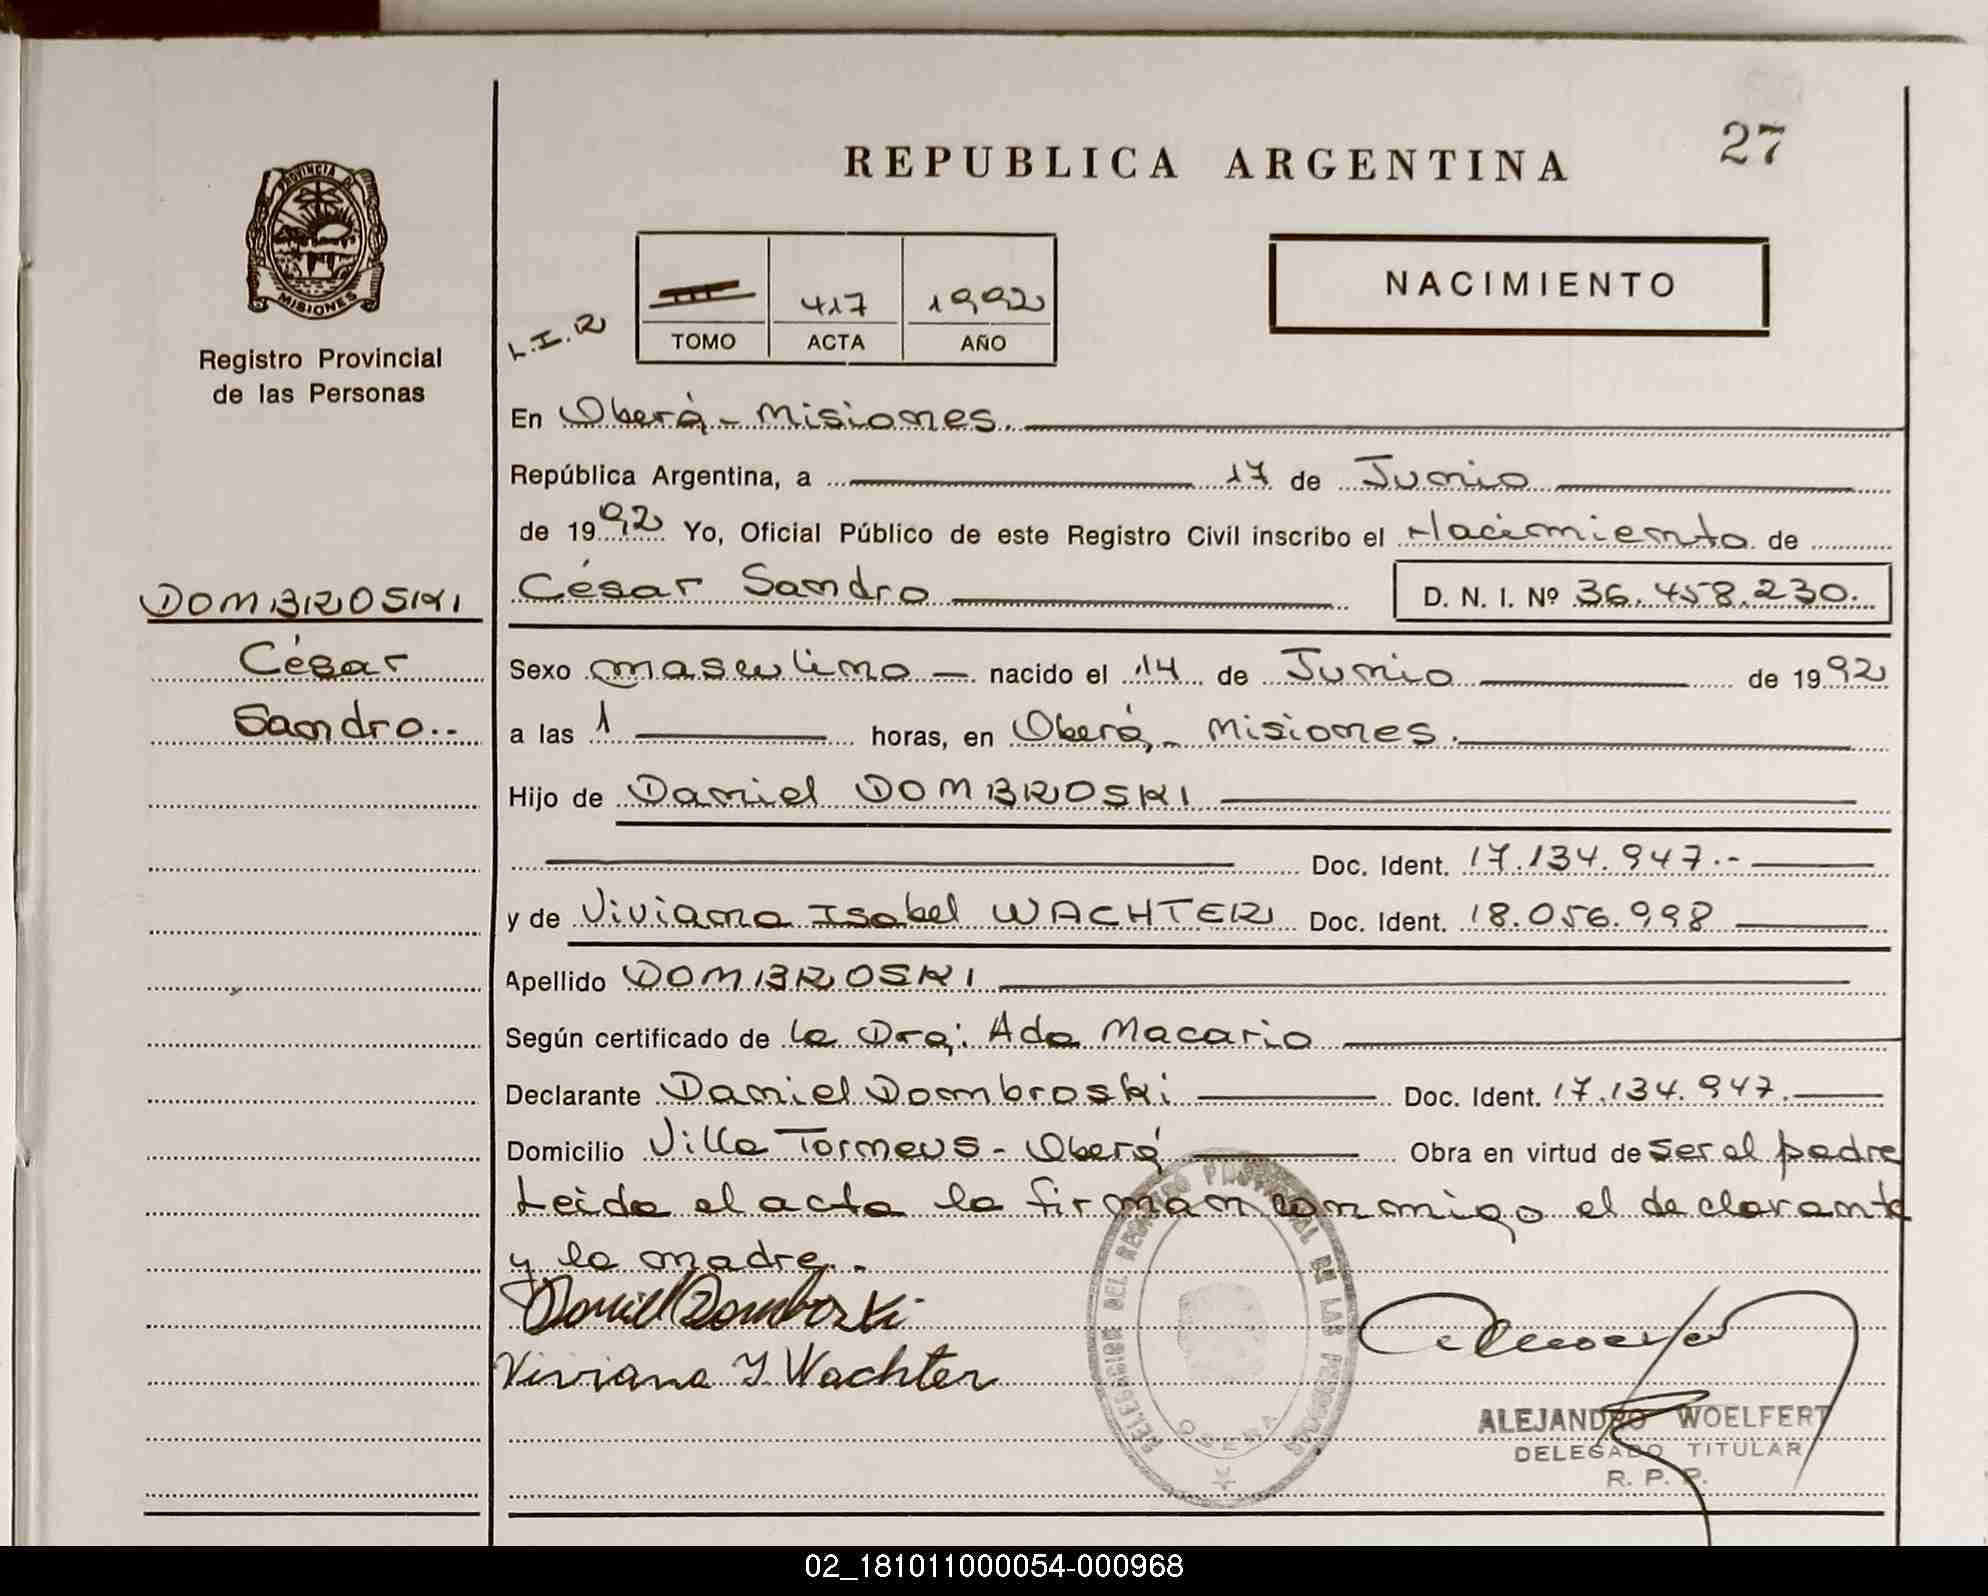 REPUBLICA ARGENTINA
27
PROVINCIA DE
MISIONES
Registro Provincial
de las Personas
L.I.R
417
1992
TOMO
ACTA
AÑO
NACIMIENTO
En Oberá - Misiones.
República Argentina, a 17 de Junio
de 1992 Yo, Oficial Público de este Registro Civil inscribo el Nacimiento de
César Sandro D. N. I. Nº 36.458.230.
DOMBROSKI
César
Sandro..-
Sexo masculino nacido el 14 de Junio de 1992
a las 1 horas, en Oberá, - Misiones.
Hijo de Daniel DOMBROSKI
Doc. Ident. 17.134.947.-
y de Viviana Isabel WACHTER Doc. Ident. 18.056.998
Apellido DOMBROSKI
Según certificado de la Dra: Ada Macario
Declarante Daniel Dombroski Doc. Ident. 17.134.947.
Domicilio Villa Torneus - Oberá Obra en virtud de ser el padre
Leida el acta la firman conmigo el declarante
y la madre.-
Daniel Dombroski
Viviana I Wachter
DELEGACION DEL REGISTRO PROVINCIAL DE LAS PERSONAS
OBERA
ALEJANDRO WOELFERT
DELEGADO TITULAR
R. P. P.
02_181011000054-000968